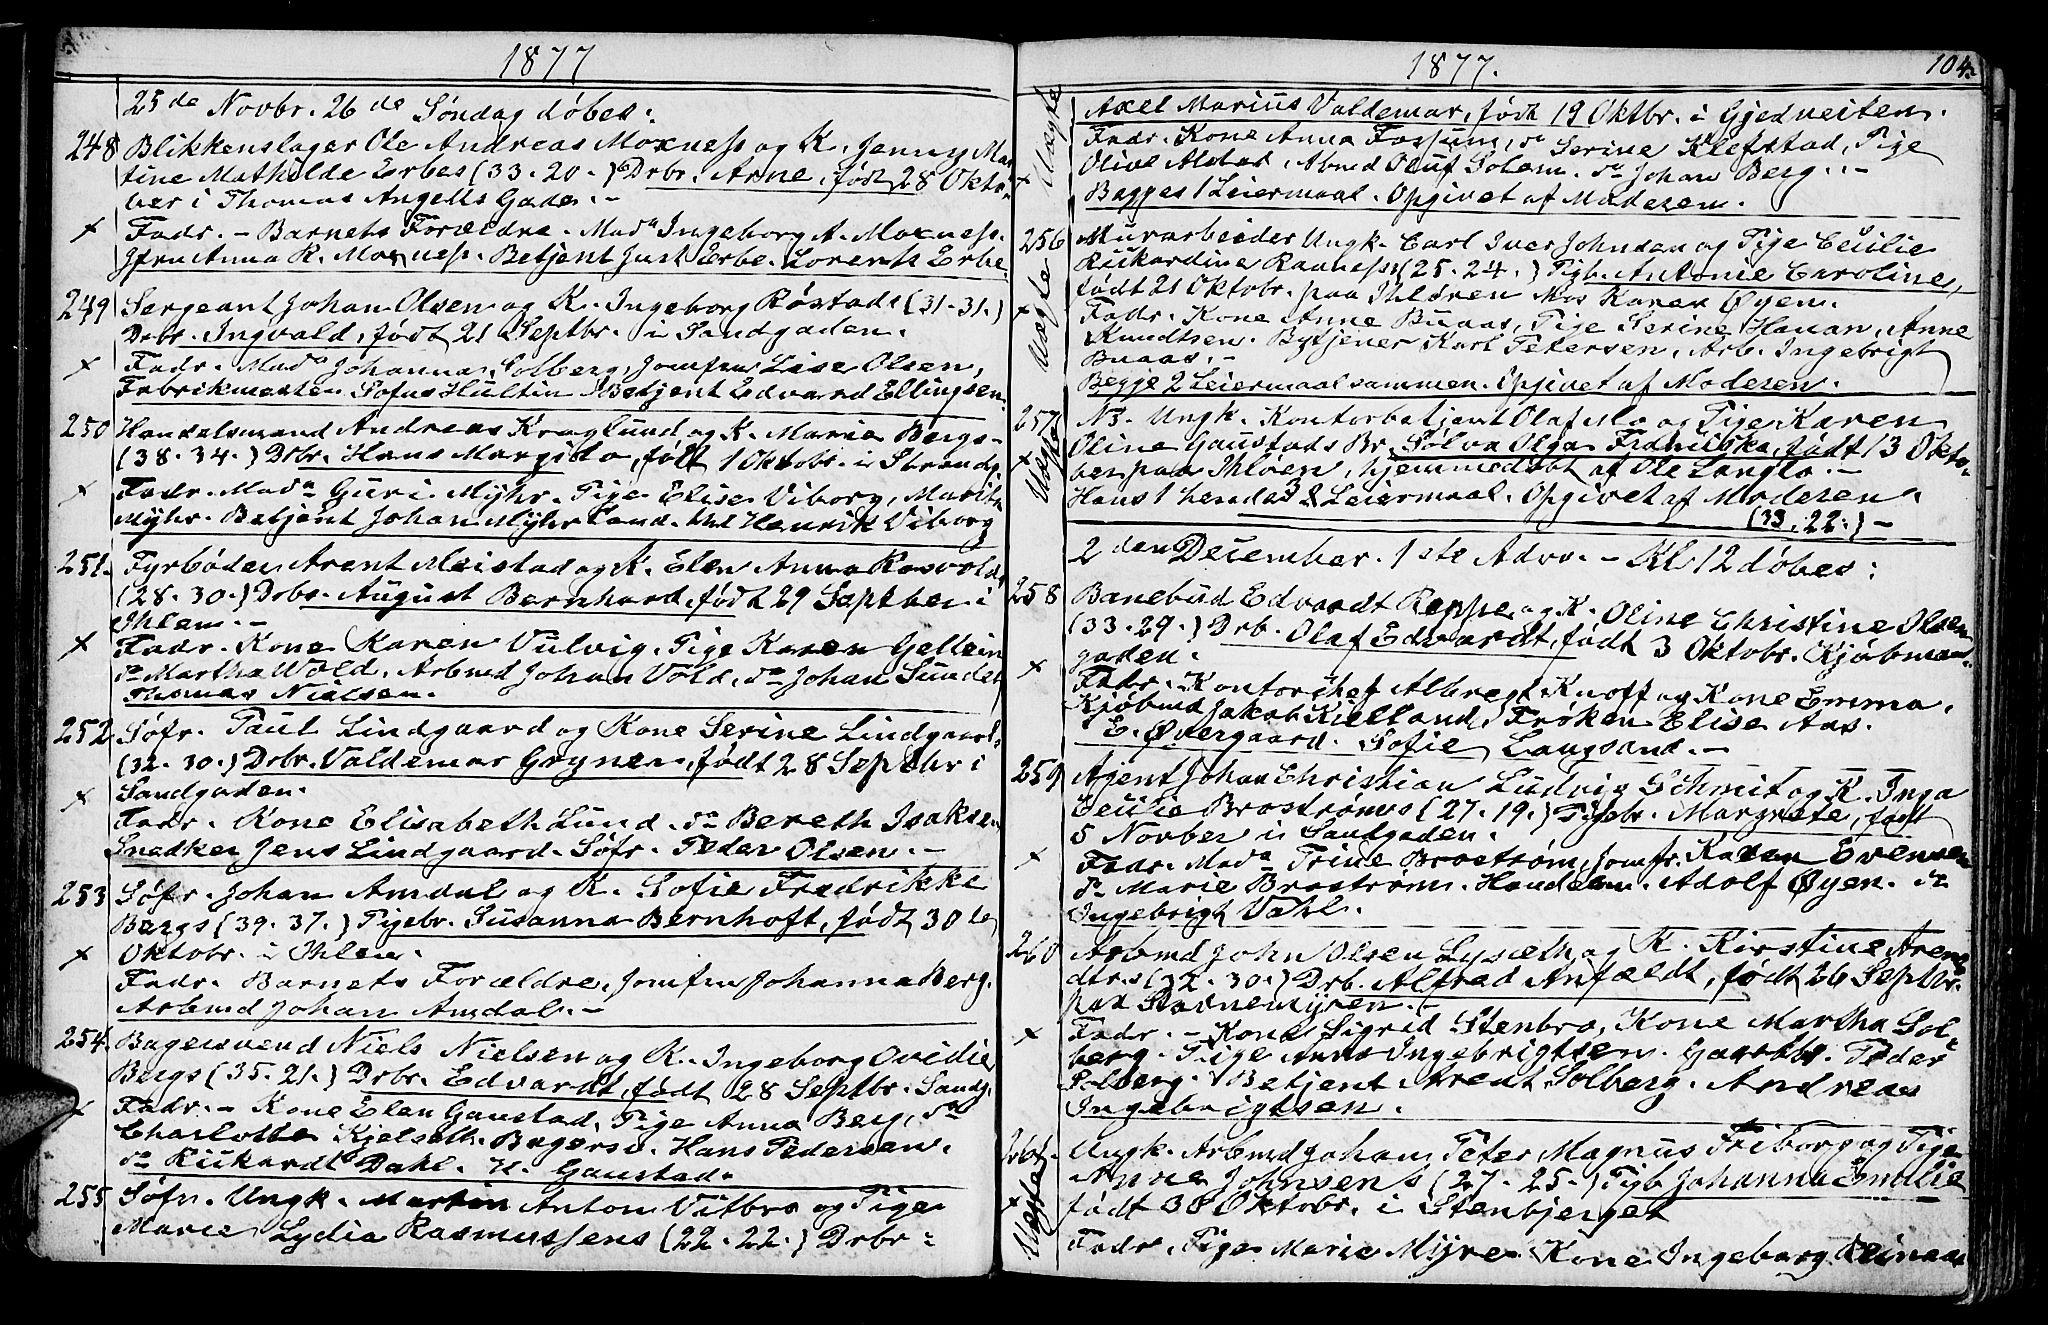 1877
25de Novbr. 26de Søndag døbes:
248 Blikkenslager Ole Andreas Moxness og K. Jenny Mar-
tine Mathilde Erbes (33.20.) Drbr. Arne, født 28 Okto-
ber i Thomas Angells Gade. -
x Fadr. - Barnets Forældre. Mada Ingeborg A. Moxness.
Jfru Anna R. Moxness. Betjent Just Erbe. Lorents Erbe
249 Sergeant Johan Olsen og K. Ingeborg Røstads (31-31.)
Drbr. Ingvald, født 21 Septbr. i Sandgaden.
x Fadr. Mada Johanna Solberg, Jomfru Lise Olsen,
Fabrikmester Sofus Hultin Betjent Edvard Ellingsen.
250 Handelsmand Andreas Kroglund og K. Marie Bergs-
(38.34.) Drbr. Hans Margido, født 1 Oktobr. i Strandg.
x Fadr. Mada Guri Myhr. Tige Elise Viborg, Marith
Myhr. Betjent Johan Myhr Sand. Henrik Viborg
251. Fyrbøder Arent Meistad og K. Elen Anna Rosvolds
(28.30.) Drbr. August Bernhard, født 29 Septber i
Ihlen. -
x Fadr. Kone Karen Vulvig. Tige Karen Gellein
do Martha Vold, Arbmd Johan Vold, do Johan Sundet
Thomas Nielsen.
252 Søfr. Paul Lindgaard og Kone Serine Lindgaards
(32.30.) Drbr. Valdemar Gogner, født 28 Septbr i
x Sandgaden.
Fadr. Kone Elisabeth Lund. do Bereth Isaksen
Snedker Jens Lindgaard. Søfr. Peder Olsen. -
253 Søfr. Johan Amdal og K. Sofie Fredrikke
Bergs (39.37.) Tigebr. Susanna Bernhoft, født 30te
x Oktobr. i Ihlen.
Fadr. Barnets Forældre, Jomfru Johanna Berg.
Arbmd Johan Amdal. -
254. Bagersvend Niels Nielsen og K. Ingeborg Ovidie
Bergs (35.21.) Drbr. Edvardt, født 28 Septbr. Sandg.
x Fadr. - Kone Elen Gaustad, Tige Anna Berg, do
Charlotte Kjelseth. Bagersv. Hans Pedersen.
do Rickardt Dahl. H. Gaustad.
255 Søfr. Ungk. Martin Anton Vitbro og Tige
Marie Lydia Rasmussens (22.22.) Drbr-
1877.
104.
Uægte
Axel Marius Valdemar, født 19 Oktbr. i Gjedveiten.
Fadr. Kone Anna Fossum, do Serine Klefstad, Tige
x Olive Alstad, Arbmd Oluf Solem. do Johan Berg. -
Begges 1 Leiermaal. Opgivet af Moderen.
256 Murarbeider Ungk. Carl Iver Johnsen og Tige Cecilie
Rickardine Ravness (25.24.) Tigb. Antonie Caroline,
født 21 Oktobr. paa Ihløren Hos Karen Øyen.
x Uægte
Fadr. Kone Anne Buaas, Tige Serine Hauan, Anne
Knudtsen. Bytjener Karl Petersen, Arb. Ingebrigt
Buaas. -
Begge 2 Leiermaal sammen. Opgivet af Moderen.
257 N3. Ungk. Kontorbetjent Olaf Mo og Tige Karen
Oline Gaustads Br. Solva Olga Fredrikka, født 13 Okto-
x Uægte
ber paa Ihlven, hjemmedøbt af Ole Langlo. -
Hans 1 hendes 3 Leiermaal. Opgivet af Moderen.
(33.22.) -
2den December. 1ste Adv. - Kl 12 døbes:
258 Banebud Edvardt Reppe og K. Oline Christine Olsen
(33.29.) Drb. Olaf Edvardt, født 3 Oktobr. Kjøbmand-
gaden.
x Fadr. Kontorchef Albregt Knoff og Kone Emma,
Kjøbmd Jakob Kielland, Frøken Elise Aas.
E. Øvergaard. Sofie Langsand. -
259 Agent Johan Christian Ludvig Schmit og K. Inga
Cecilie Brostrøms (27.19.) Tigebr. Margrete, født
5 Novber i Sandgaden.
x Fadr. Mada Trine Brostrøm, Jomfr. Karen Evensen
do Marie Brostrøm. Handelsm. Adolf Øyen. do
Ingebrigt Vahl.
260 Arbmd John Olsen Lyseth, og K. Kirstine Arent-
dtrs (32.30.) Drb. Alfred Anfældt, født 26 Septbr.
paa Stavnemyren. -
x Fadr. - Kone Sigrid Stenbro, Kone Martha Sol-
berg. Tige Anne Ingebrigtsen. Gaardbr. Peder
Solberg. Betjent Arent Solberg. Andreas
Ingebrigtsen.
261. Ungk. Arbmd Johan Peter Magnus Friborg og Tige
Anne Johnsens (27.25.) Tigb Johanna Emilie
x Uægte
født 30 Oktobr. i Stenbjerget
Fadr. Tige Marie Myre. Kone Ingeborg